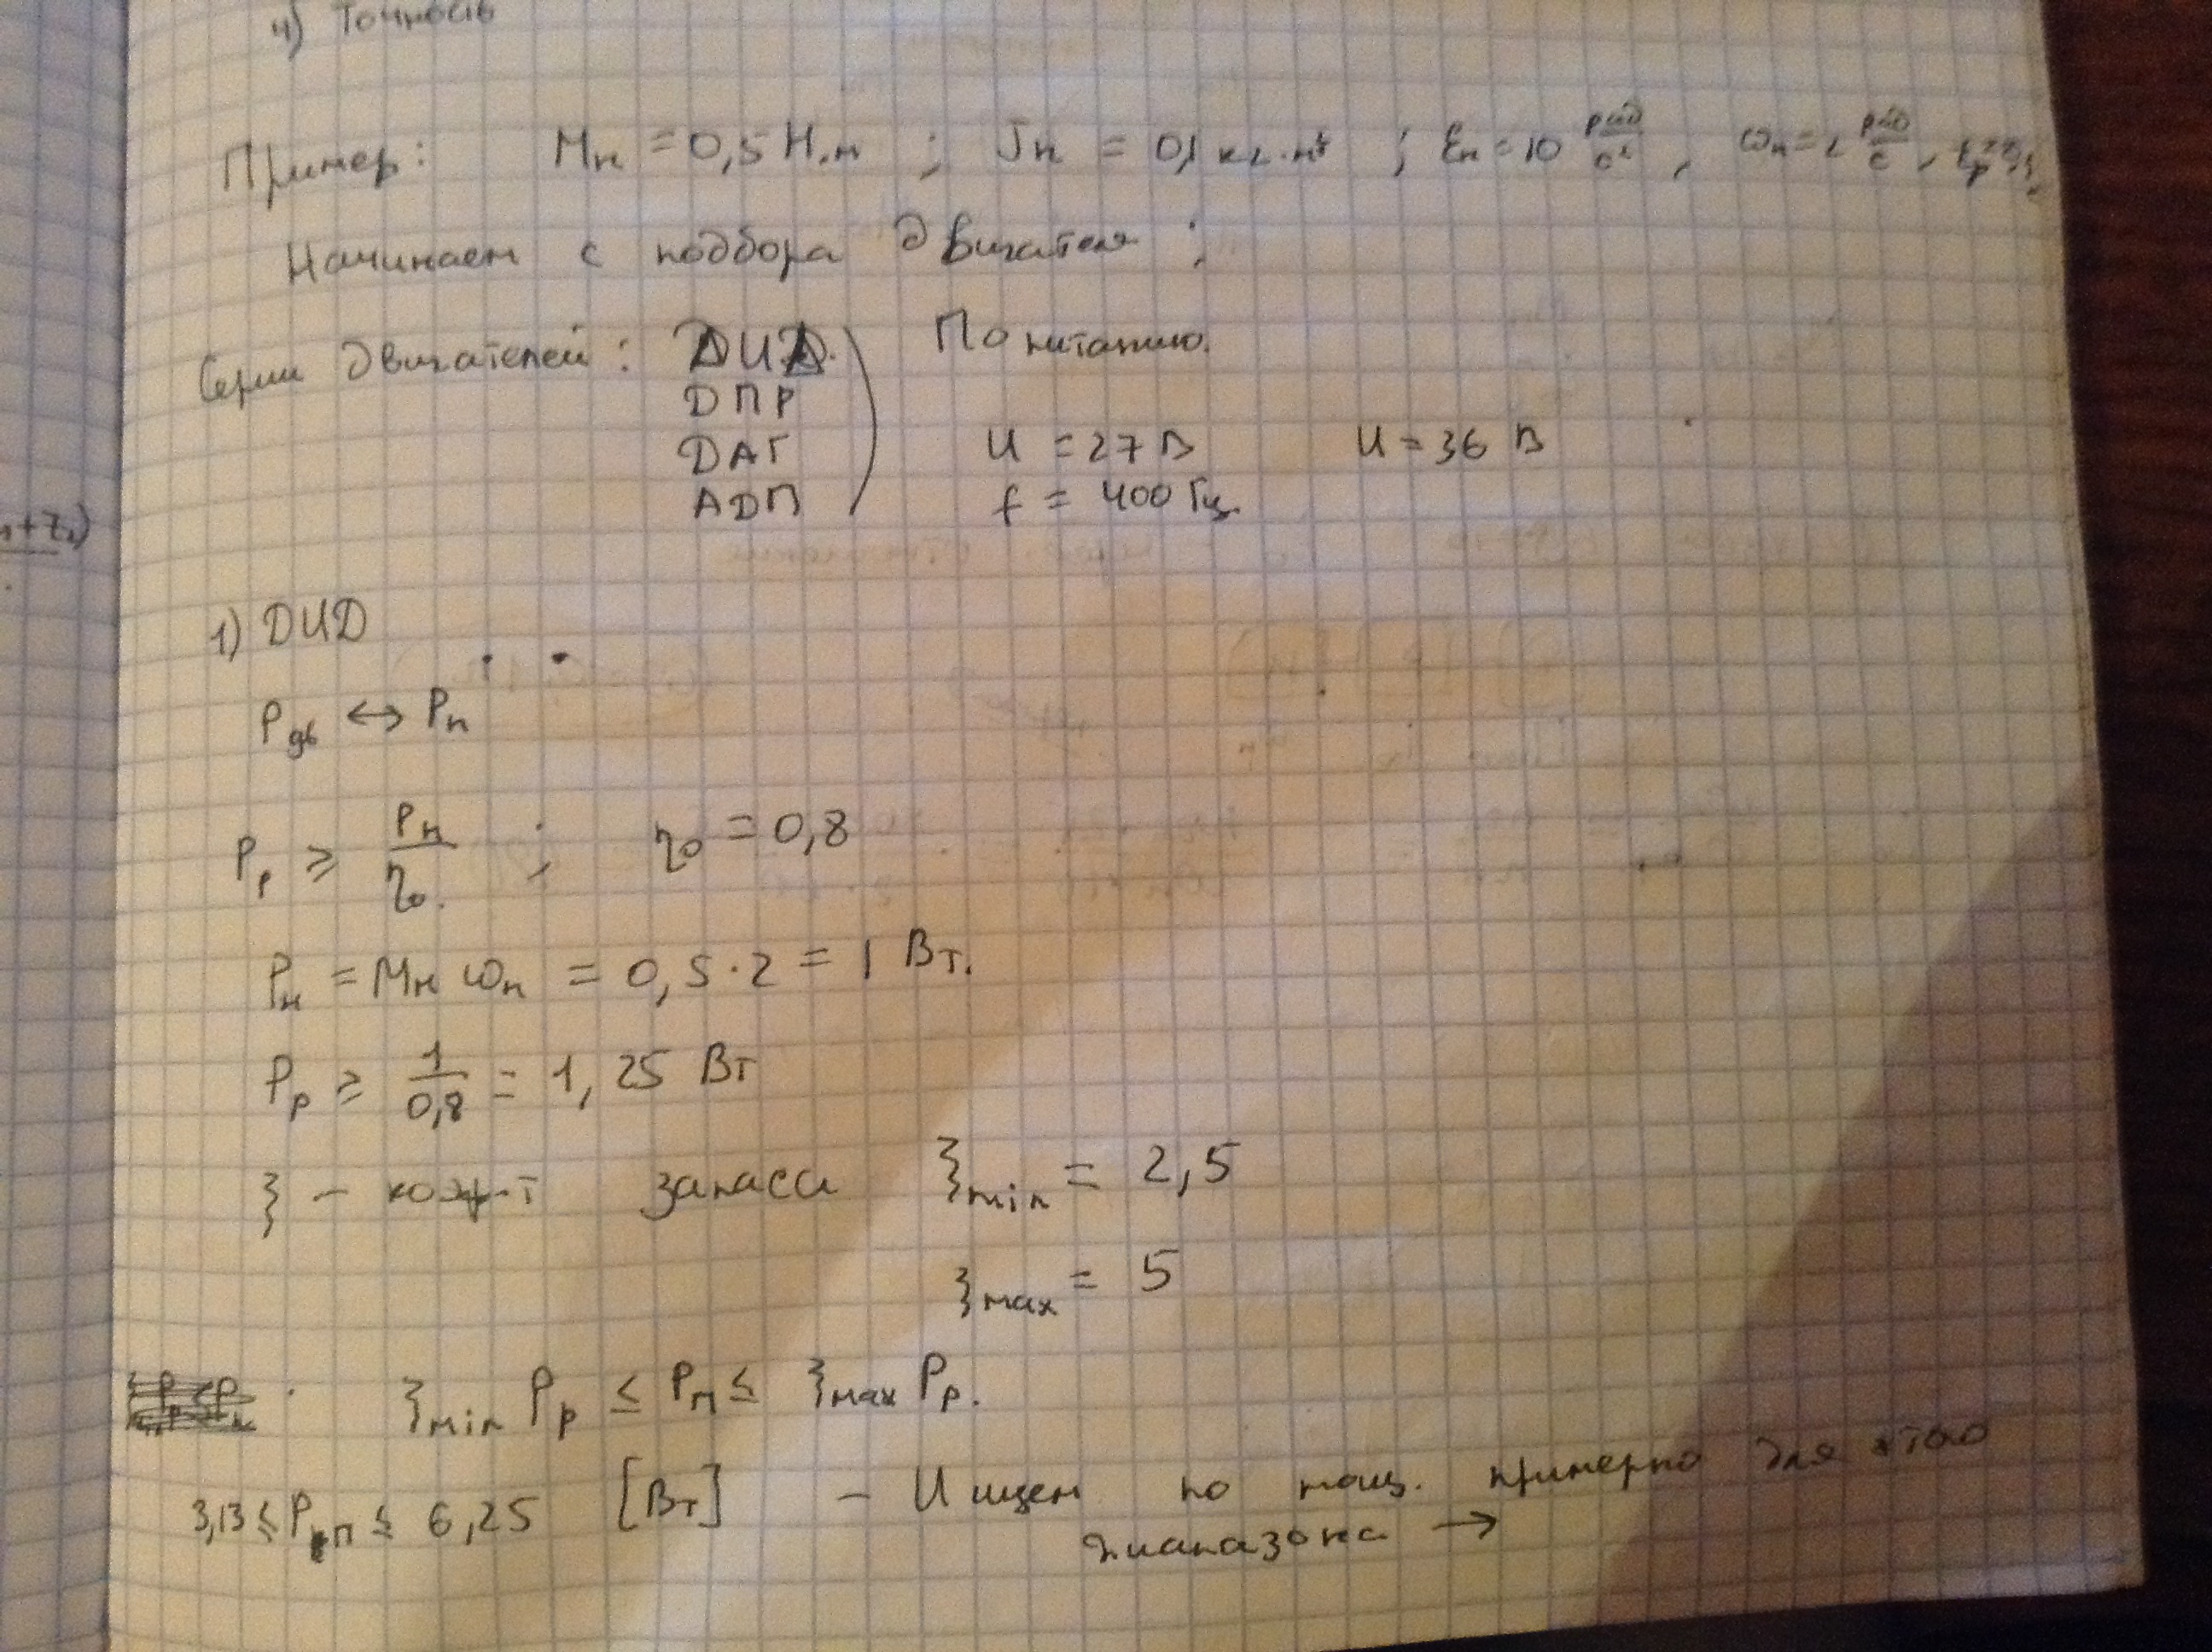 4) Точность
Пример: Mн = 0,5 Н.м ; Jн = 0,1 кг·м² ; Eн = 10 рад/с² , ωн = 2 рад/с ,
Начинаем с подбора двигателя ;
Серии двигателей : ДИД. По питанию.
ДПР
ДАГ U = 27 В U = 36 В
АДП f = 400 Гц.
n+Z₂)
1) ДИД
Pдв ↔ Pн
Pр ≥ Pн/η₀. ; η₀ = 0,8
Pн = Mн ωн = 0,5·2 = 1 Вт.
Pр ≥ 1/0,8 = 1,25 Вт
ξ – коэф-т запаса ξmin = 2,5
ξmax = 5
ξmin Pр ≤ Pп ≤ ξmax Pр.
3,13 ≤ Pп ≤ 6,25 [Вт] – Ищем по мощ. примерно для этого
диапазона →